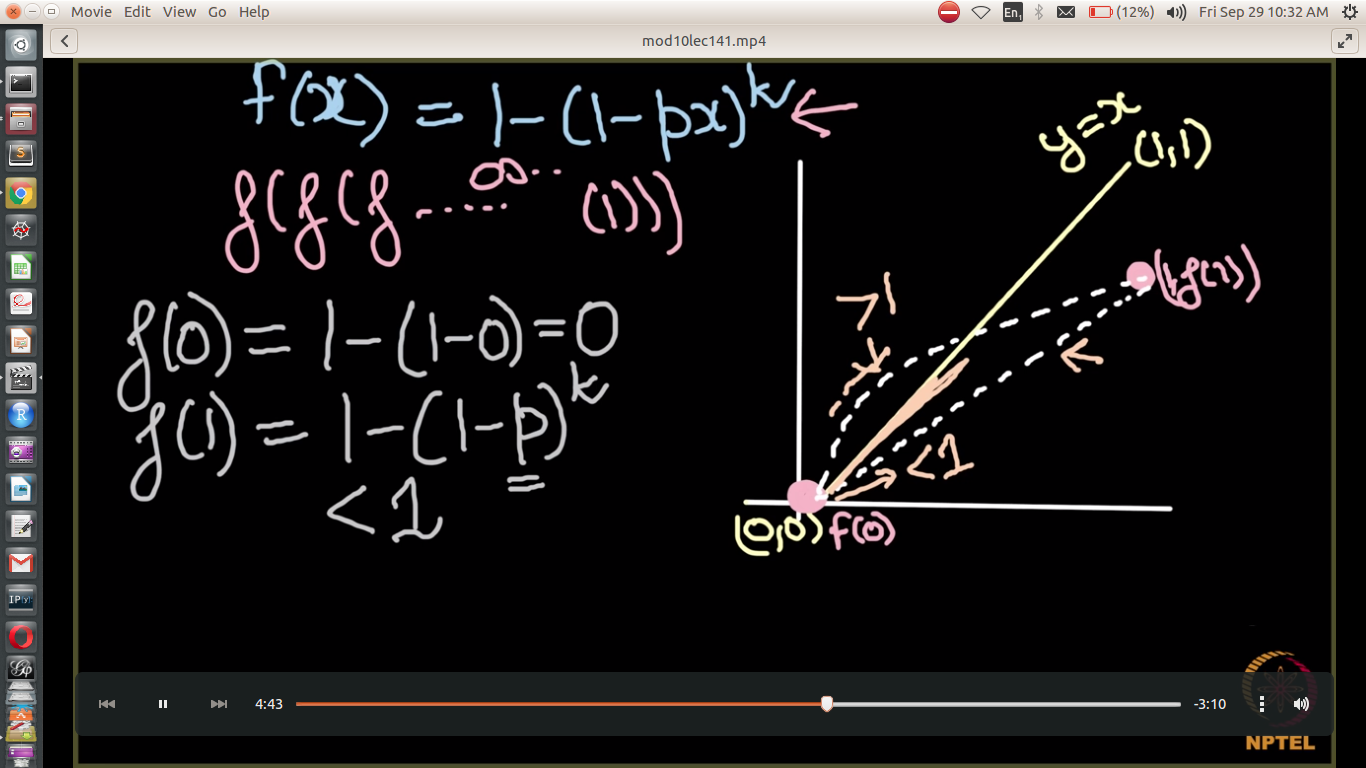 Movie Edit View Go Help
En1 (12%) Fri Sep 29 10:32 AM
mod10lec141.mp4
f(x) = 1-(1-px)^k ←
f(f(f ...... ∞.. (1)))
f(0) = 1-(1-0)=0
f(1) = 1-(1-p)^k
<1
y=x
(1,1)
(1,f(1))
>1
<1
(0,0) f(0)
4:43
-3:10
NPTEL